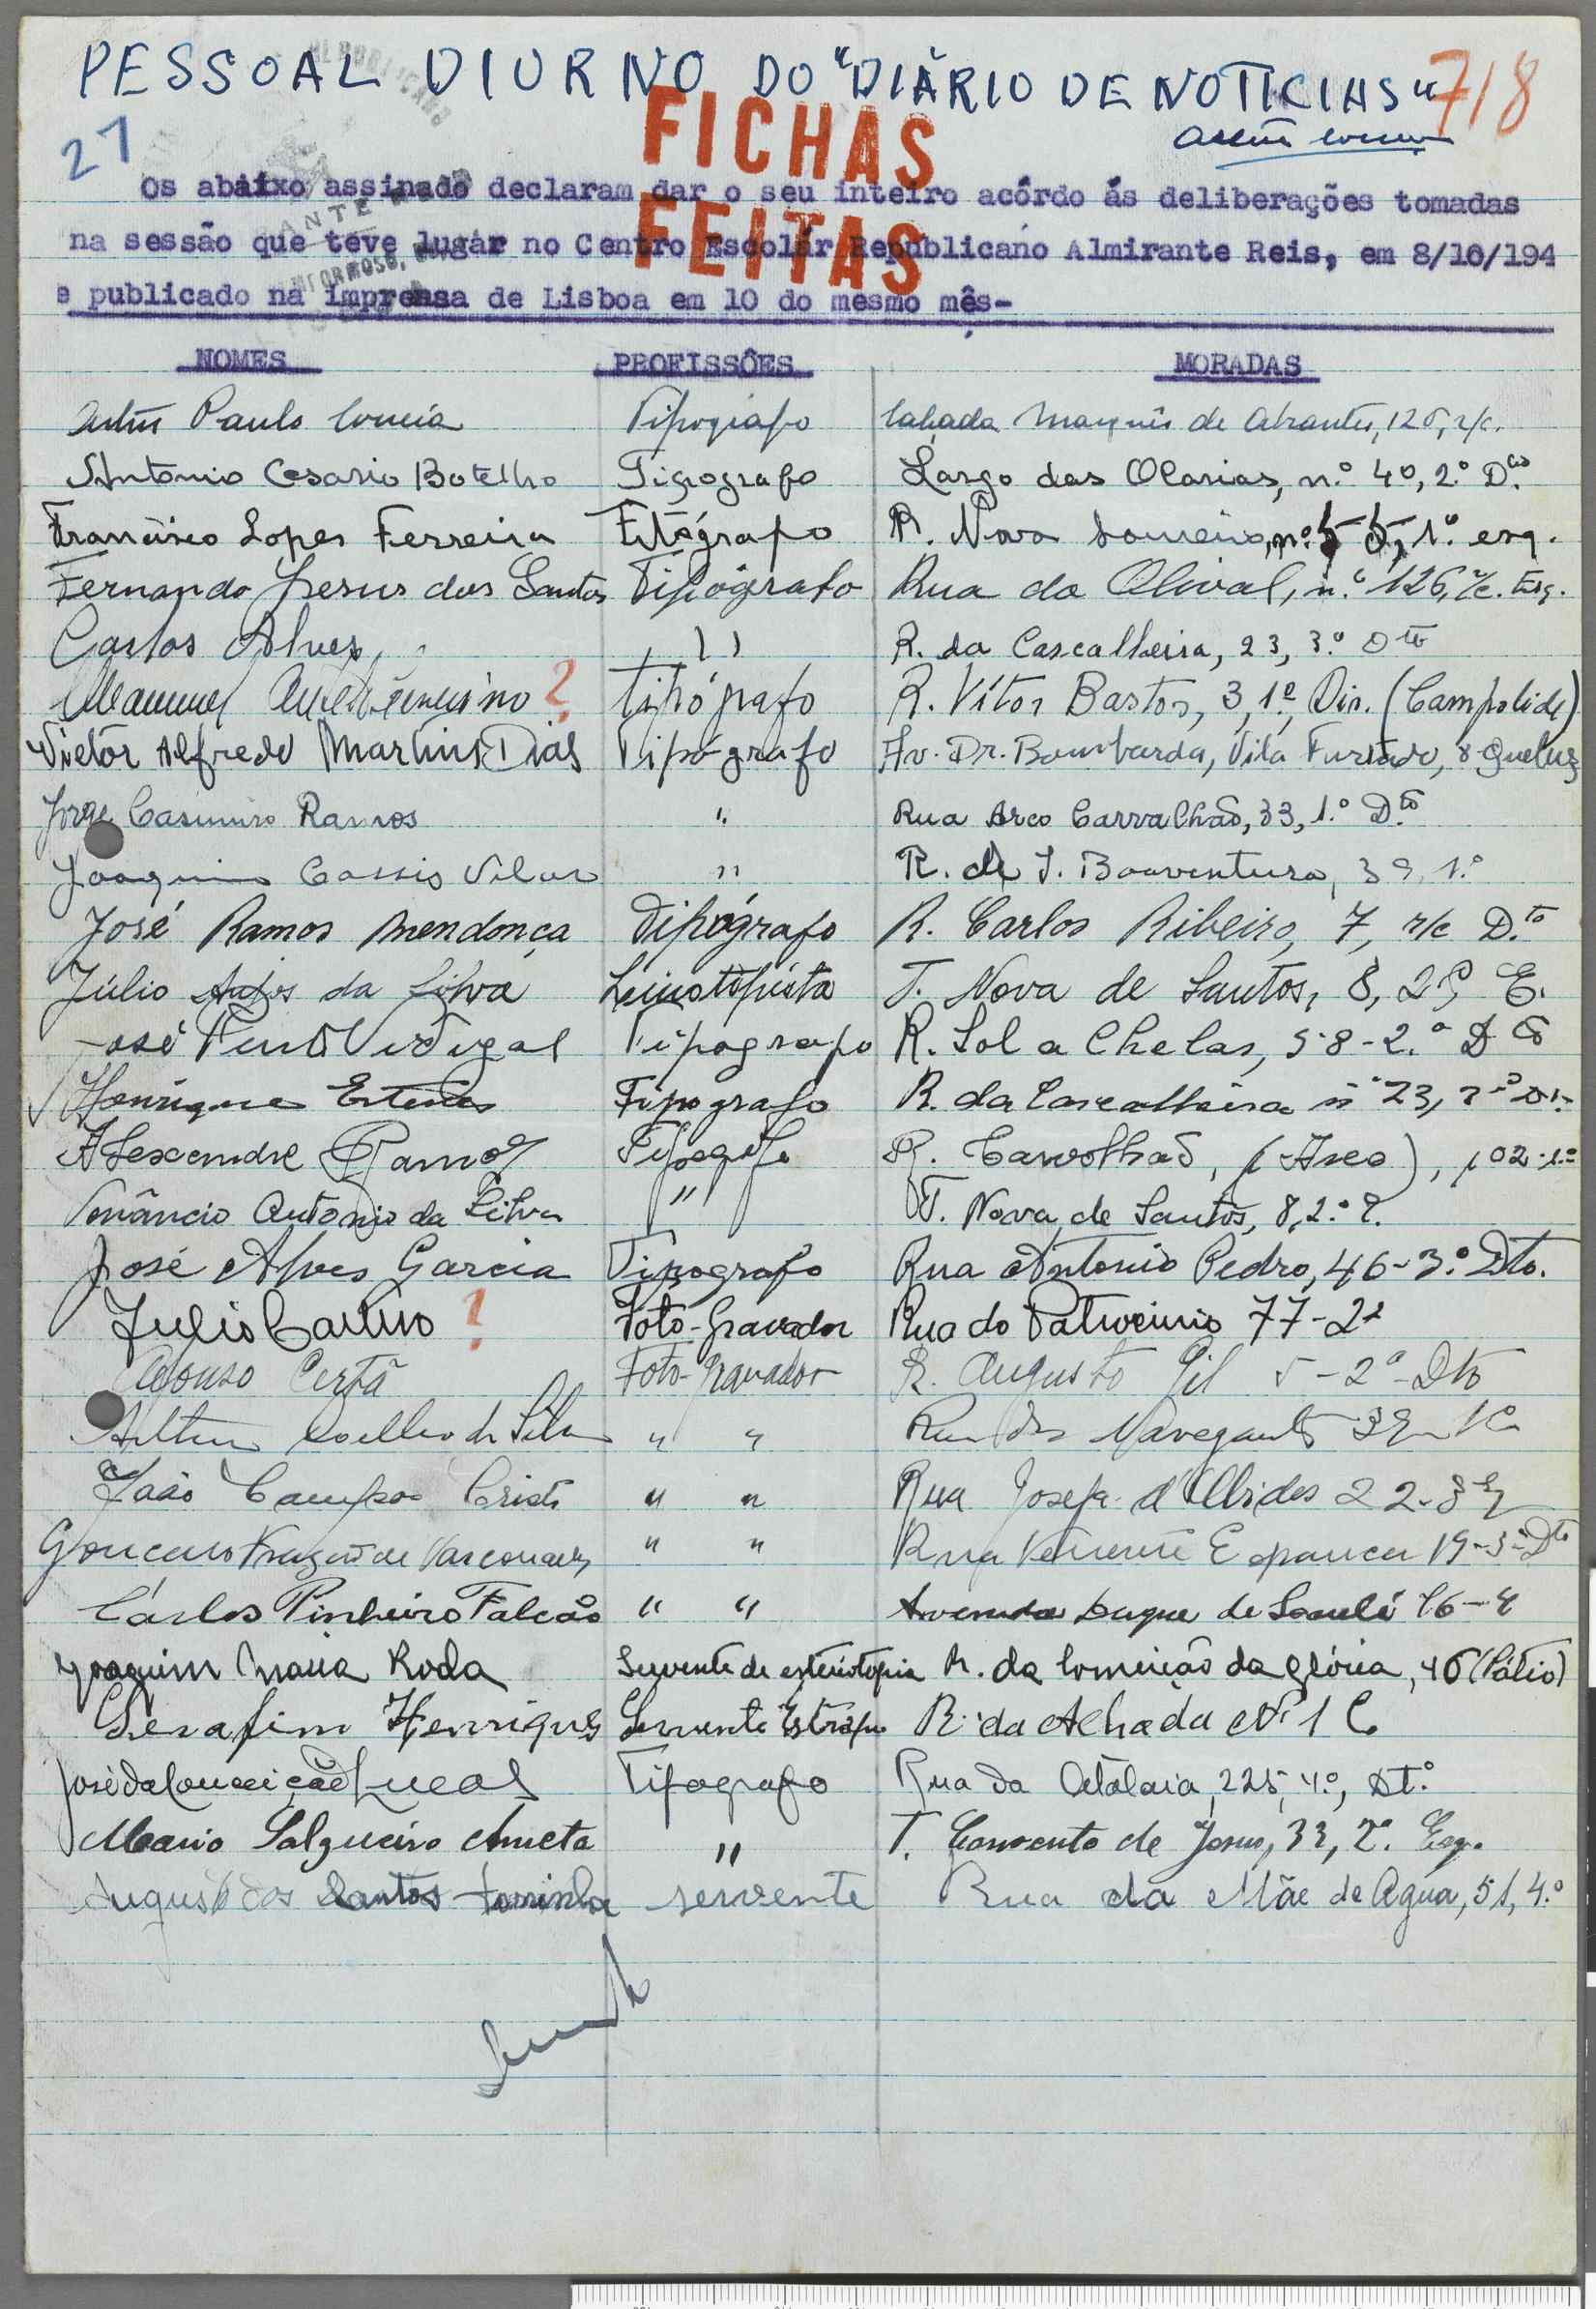 PESSOAL DIURNO DO "DIÁRIO DE NOTICIAS"
718
21
FICHAS
FEITAS
Os abaixo assinado declaram dar o seu inteiro acôrdo ás deliberações tomadas
na sessão que teve lugar no Centro Escolar Republicano Almirante Reis, em 8/10/194
e publicado na imprensa de Lisboa em 10 do mesmo mês-
NOMES PROFISSÕES MORADAS
Artur Paulo Correia Tipografo Calçada Marquês de Abrantes, 126, r/c.
António Cesario Botelho Tipografo Largo das Olarias, n.º 40, 2.º D.to
Francisco Lopes Ferreira Tipógrafo R. Nova Loureiro, n.º 55, 1.º esq.
Fernando Jesus dos Santos Tipógrafo Rua do Olival, n.º 126, r/c. Esq.
Carlos Alves " R. da Cascalheira, 23, 3.º Dto
Manuel ? tipógrafo R. Vítor Bastos, 3, 1.º, Dir. (Campolide)
Victor Alfredo Martins Dias Tipógrafo Av. Dr. Bombarda, Vila Furtado, 8 Queluz
Jorge Casimiro Ramos " Rua Arco Carvalhão, 33, 1.º D.to
Joaquim Cassis Vilar " R. de S. Boaventura, 39, 1.º
José Ramos Mendonça Tipógrafo R. Carlos Ribeiro, 7, r/c D.to
Júlio Anjos da Silva Linotipista T. Nova de Santos, 8, 2.º, E.
José Verdugal Tipografo R. Sol a Chelas, 58-2.º Dto
Henrique Esteves Tipografo R. da Cascalheira nº 23,
Alexandre Ramos Tipografo R. Carvalhão, (Arco), 102-1.º
Venâncio António da Silva " T. Nova de Santos, 8, 2.º E.
José Alves Garcia Tipografo Rua Antonio Pedro, 46-3.º Dto.
Julio ? Foto-Gravador Rua do Patrocinio 77-2º
Afonso Certã Foto-gravador R. Augusto Gil 5-2º-Dto
Artur Coelho da Silva " " Rua dos Navegantes
João Campos Cristo " " Rua Josefa d'Obidos 22-
Gonçalo Frazão de Vasconcelos " " Rua Tenente Espanca 19-3º-Dto
Cárlos Pinheiro Falcão " " Avenida Duque de Loulé 76-4
Joaquim Maria Roda Servente de esteriotopia R. da Conceição da Glória, 46 (Pátio)
Serafim Henriques Servente R. da Achada Nº 1 C.
José da Conceição Lucas Tipografo Rua da Atalaia, 225, 4.º, Dt.º
Mario Salgueiro Anneta " T. Convento de Jesus, 33, 2.º Esq.
Augusto dos Santos Farinha servente Rua da Mãe de Agua, 51, 4.º